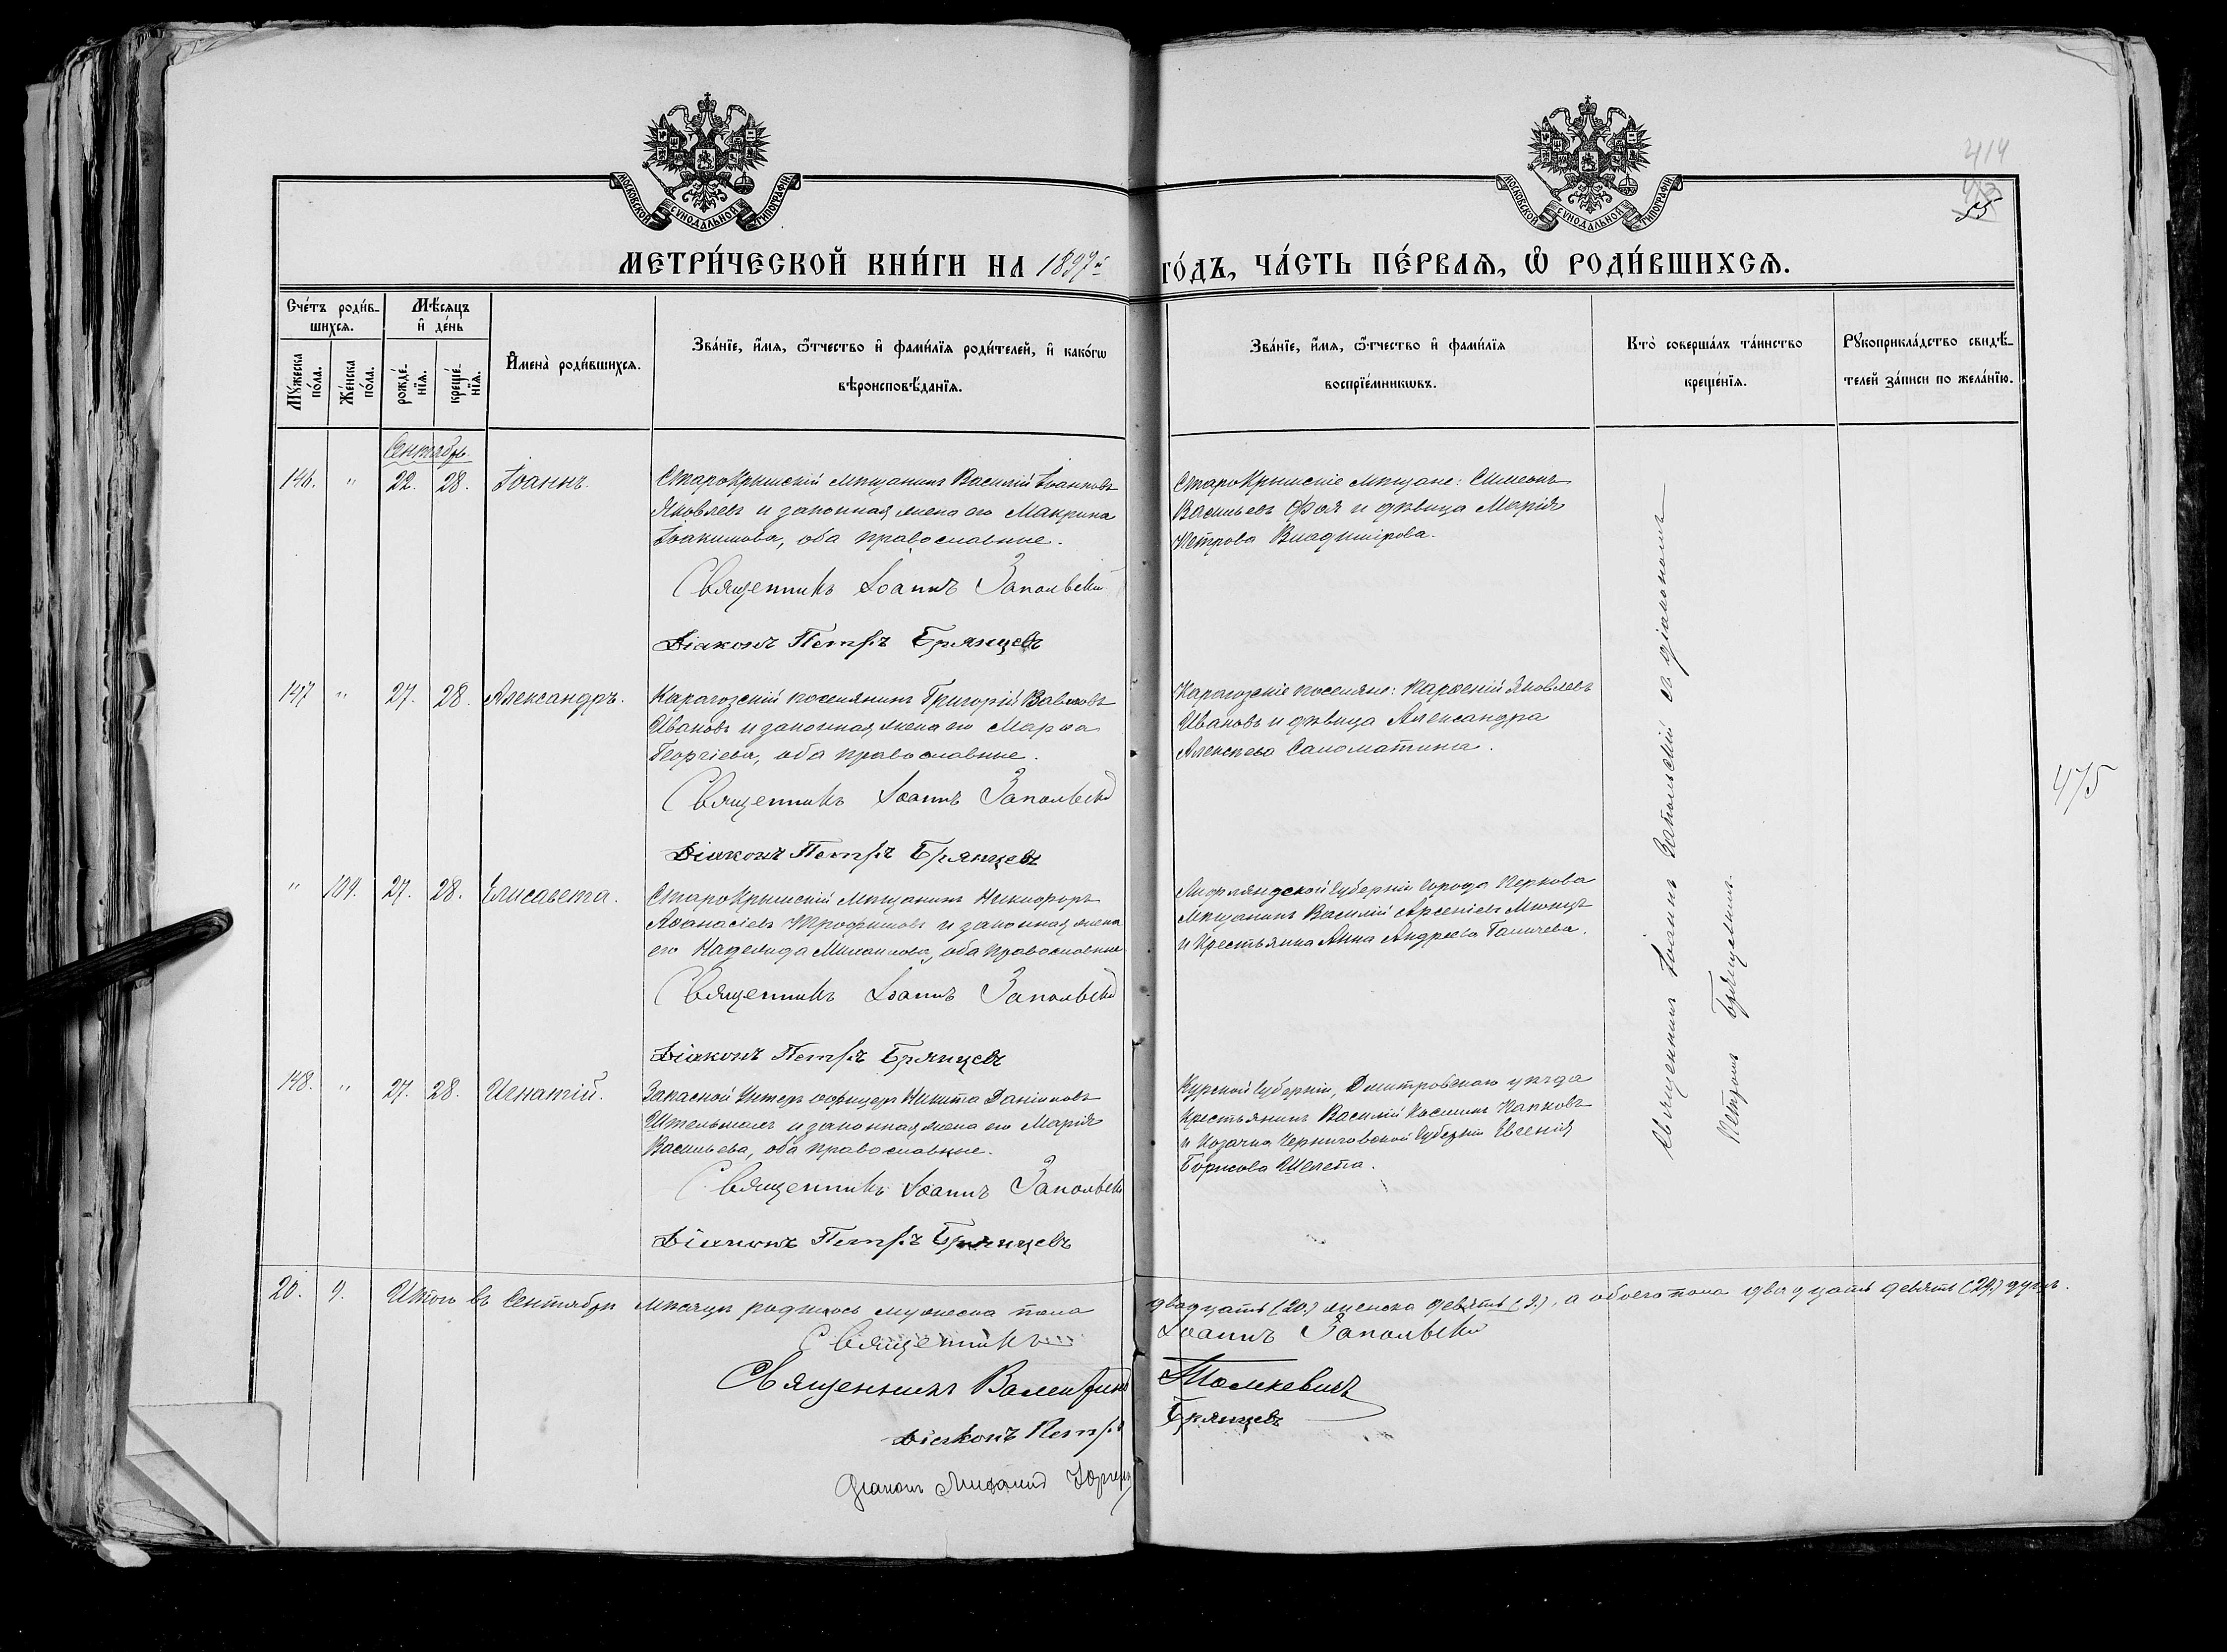 МОСКОВСКОЙ СѴНОДАЛЬНОЙ ТИПОГРАФІИ
МОСКОВСКОЙ СѴНОДАЛЬНОЙ ТИПОГРАФІИ
414
55
МЕТРИ́ЧЕСКОЙ КНИ́ГИ НА 1897й ГО́ДЪ, ЧА́СТЬ ПЕ́РВАЯ, Ѡ РОДИ́ВШИХСЯ.
Сче́тъ роди́в-
шихся.
Мѣ́сяцъ
и де́нь
Мꙋ́жеска по́ла.
Же́нска по́ла.
рожде́-нїя.
креще́-нїя.
Имена̀ роди́вшихся.
Зва́нїе, и́мя, ѻ́тчество и фами́лїя роди́телей, и како́гѡ
вѣроисповѣ́данїя.
Зва́нїе, и́мя, ѻ́тчество и фами́лїя
воспрїе́мникѡвъ.
Кто̀ соверша́лъ та́инство
креще́нїя.
Рꙋкоприкла́дство свидѣ́-
телей за́писи по жела́нїю.
Сентябрь
146. " 22. 28. Іоаннъ.
СтароКрымскій мѣщанинъ Василій Іоанновъ
Яковлевъ и законная жена его Макрина
Іоакимова, оба православные.
Священникъ Іоаннъ Запольскій
Діаконъ Петръ Брянцевъ
СтароКрымскіе мѣщане: Симеонъ
Васильевъ Фоя и дѣвица Марія
Петрова Владимірова.
147 " 27. 28. Александръ.
Карагозскій поселянинъ Григорій Павловъ
Ивановъ и законная жена его Марѳа
Георгіева, оба православные.
Священникъ Іоаннъ Запольскій
Діаконъ Петръ Брянцевъ
Карагозскіе поселяне: Парѳеній Яковлевъ
Ивановъ и дѣвица Александра
Алексѣева Саломатина.
" 109. 27. 28. Елисавета.
СтароКрымскій мѣщанинъ Никифоръ
Аѳанасіевъ Трофимовъ и законная жена
его Надежда Михаилова, оба православные
Священникъ Іоаннъ Запольскій
Діаконъ Петръ Брянцевъ
Лифляндской губерніи города Пернова
мѣщанинъ Василій Арсеніевъ
и крестьянка Анна Андреева Галичева.
148. " 27. 28. Игнатій.
Запасной Унтеръ офицеръ Никита Даніиловъ
и законная жена его Марія
Васильева, оба православные.
Священникъ Іоаннъ Запольскій
Діаконъ Петръ Брянцевъ
Курской губерніи, Дмитровскаго уѣзда
крестьянинъ Василій Папковъ
и козачка Черниговской губерніи Евгенія
Борисова Шелепа.
Священникъ Іоаннъ Запольскій съ діакономъ
Петромъ Брянцевымъ.
475
20. 9. Итого въ Сентябрѣ мѣсяцѣ родилось мужеска пола двадцать (20.) женска девять (9.), а обоего пола двадцать девять (29.) душъ.
Священникъ Іоаннъ Запольскій
Священникъ Валентинъ
Діаконъ Петръ Брянцевъ
Діаконъ Михаилъ